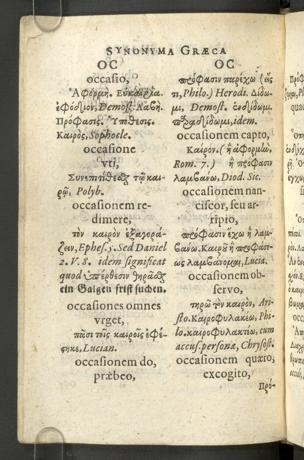 SYNONYMA GRÆCA
OC
occasio,
Ἀφορμή. Εὐκαιρία.
ἐφόδιον, Demost. Λαβή.
Πρόφασις. Ὑπόθεσις.
Καιρὸς, Sophocle.
occasione
vti,
Συνεπιτίθεσθαι τῷ και-
ρῷ, Polyb.
occasionem re-
dimere,
τὸν καιρὸν ἐξαγορά-
ζειν, Ephes. 5. Sed Daniel
2. V. 8. idem significat
quod ὑπέρθεσιν
ein Galgen frist suchen,
occasiones omnes
vrget,
πᾶσι τοῖς καιροῖς ἐφέ-
Lucian.
occasionem do,
præbeo,
OC
πρόφασιν παρέχω (εἴς
τι, Philo.) Herodi. Δίδω-
μι, Demost. ἐνδίδωμι.
παραδίδωμι, idem.
occasionem capto,
Καιρὸν. (ἢ ἀφορμὼ,
Rom. 7.) ἢ πρόφασιν
λαμβάνω, Diod. Sic.
occasionem nan-
ciscor, seu ar-
ripio,
πρόφασιν ἔχω ἢ λαμ-
βάνω. Καιρὸ ἢ πρόφασε-
ως λαμβάνομαι, Lucia.
occasionem ob-
servo,
τηρῶ τὸν καιρὸν, Ari-
sto. Καιροφυλακέω, Phi-
lo. καιροφυλακτέω, cum
accus. personæ, Chrysost.
occasionem quæro,
excogito,
Πρό-